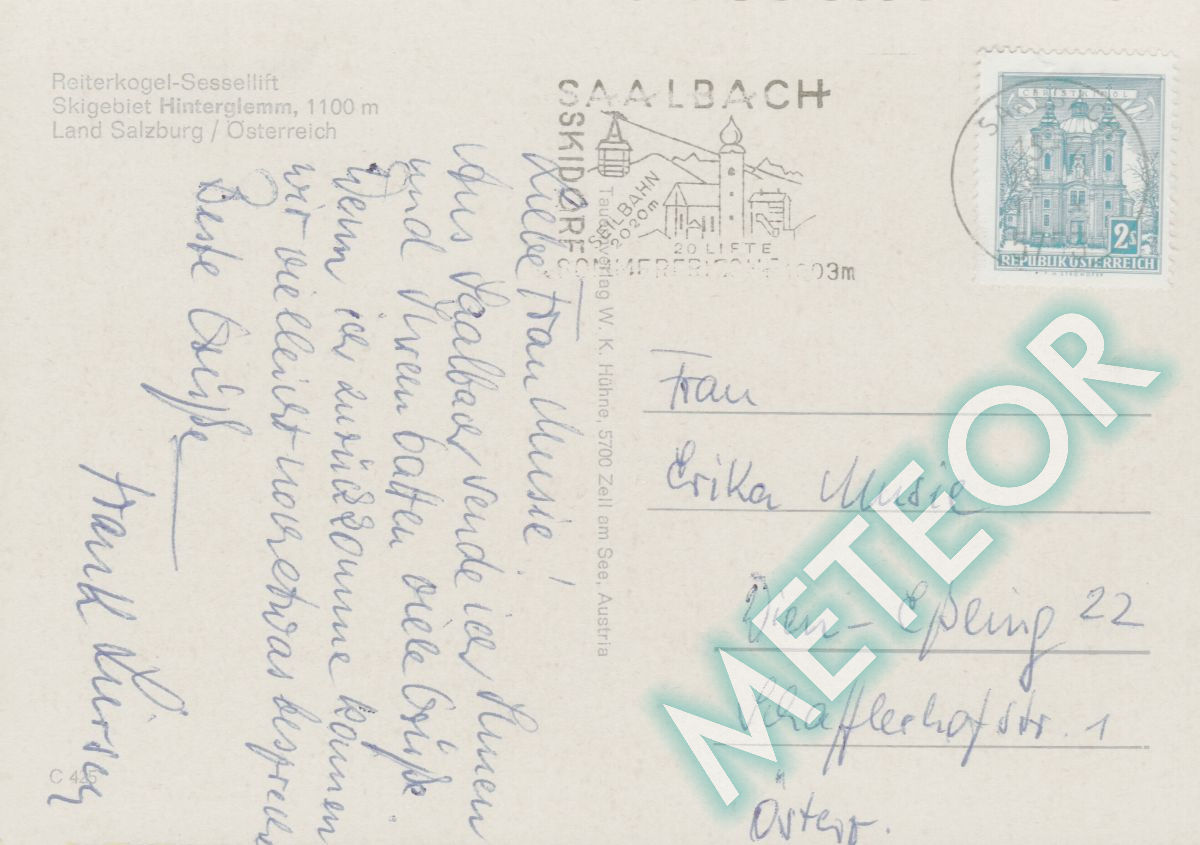 Reiterkogel-Sessellift
Skigebiet Hinterglemm, 1100 m
Land Salzburg / Österreich
SAALBACH
SKIDORF
SEILBAHN
2020m
20 LIFTE
SOMMERFRISCHE 1003m
CHRISTKINDL
2s
REPUBLIK ÖSTERREICH
Liebe Frau Musie!
Aus Saalbach sende ich Ihnen
und Ihrem Gatten viele Grüße.
Wenn ich zurückkomme können
wir vielleicht noch etwas besprechen
Beste Grüße
Frank
Tauernverlag W. K. Hühne, 5700 Zell am See, Austria
Frau
Erika Musie
Wien - Eßling 22
Schafflerhofstr. 1
Österr.
C 425
METEOR